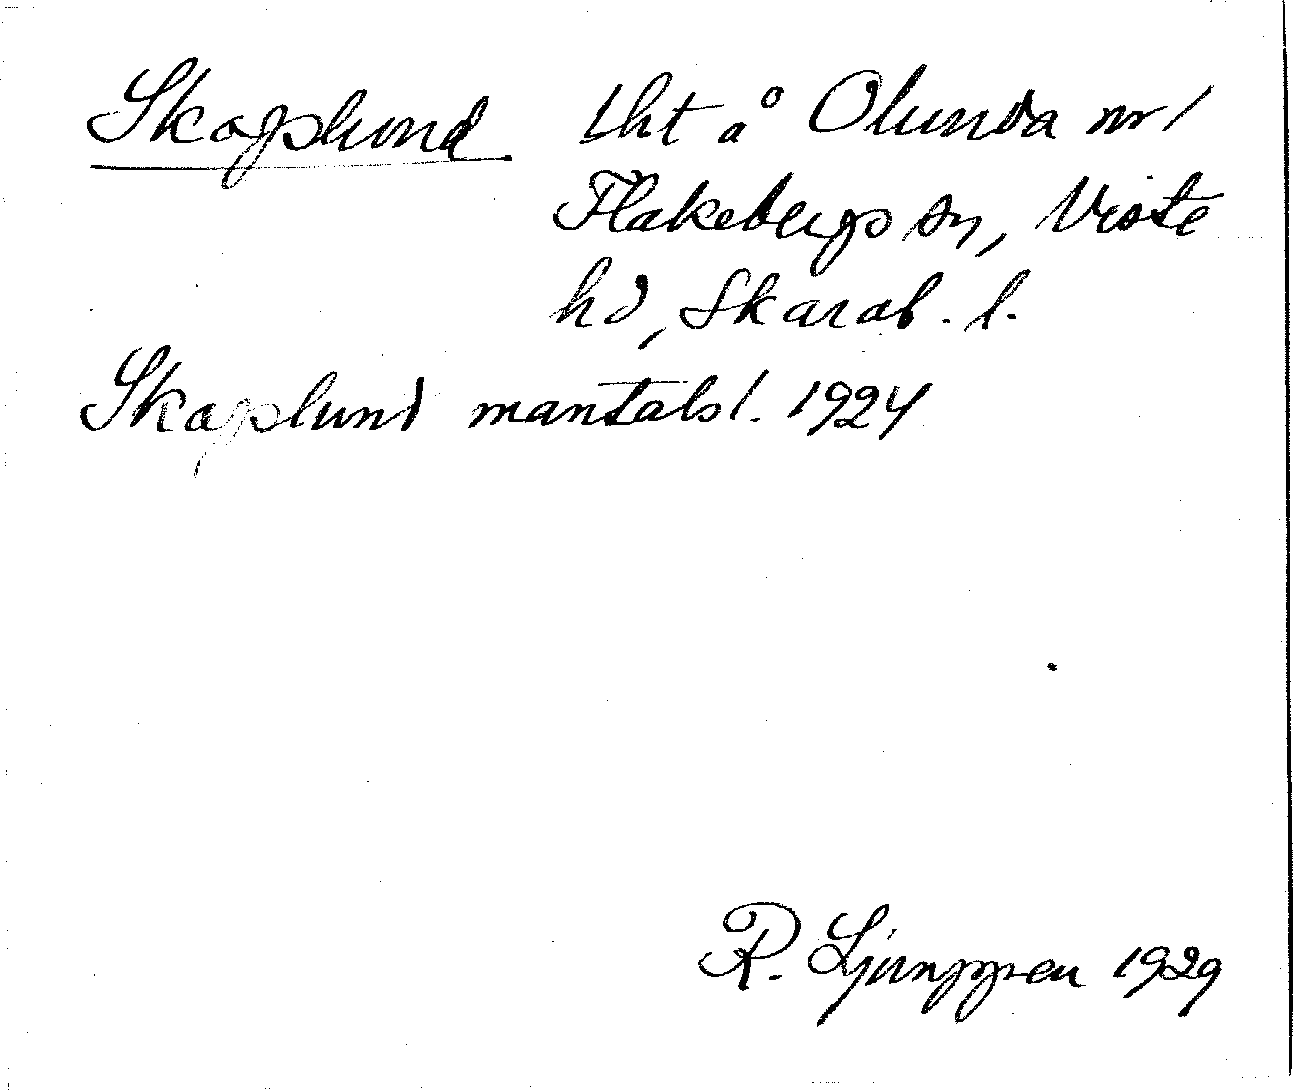 Skogslund lht å Olunda nr 1
Flakebergs sn, Viste
hd, Skarab. l.
Skogslund mantalsl. 1924
R. Ljunggren 1929